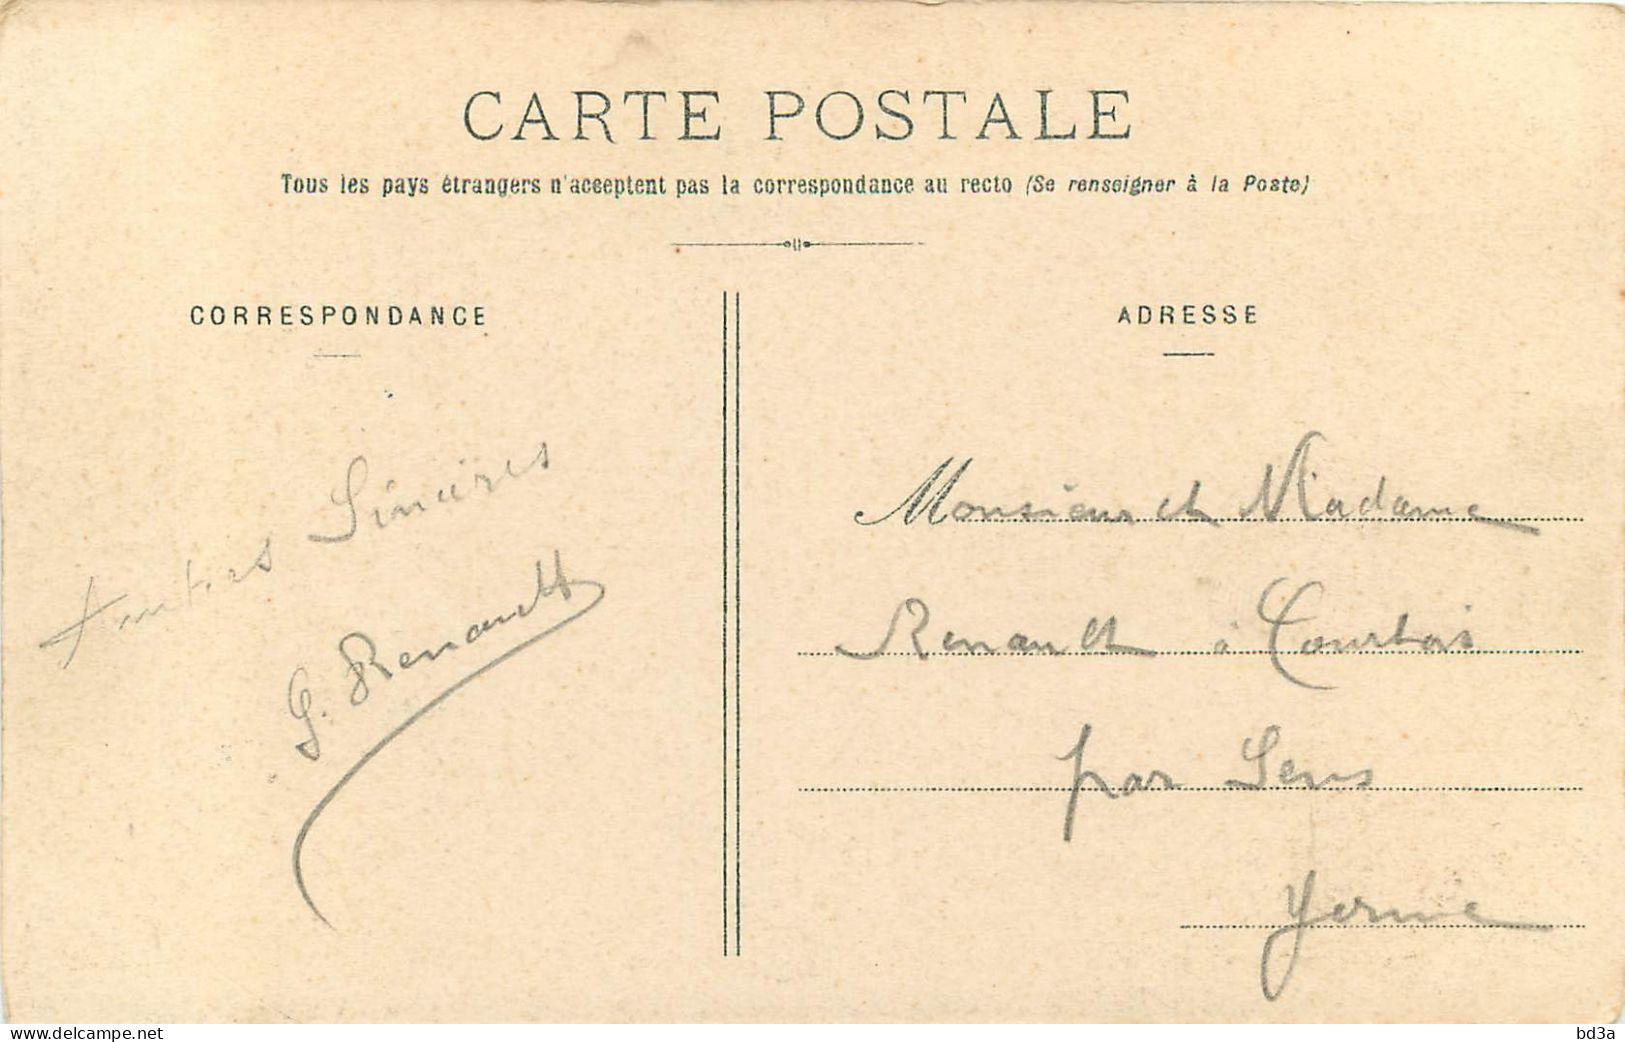 CARTE POSTALE
Tous les pays étrangers n'acceptent pas la correspondance au recto (Se renseigner à la Poste)
CORRESPONDANCE
Sincères
G. Renault
ADRESSE
Monsieur et Madame
Renault à Courtois
par Sens
Yonne
www.delcampe.net
bd3a